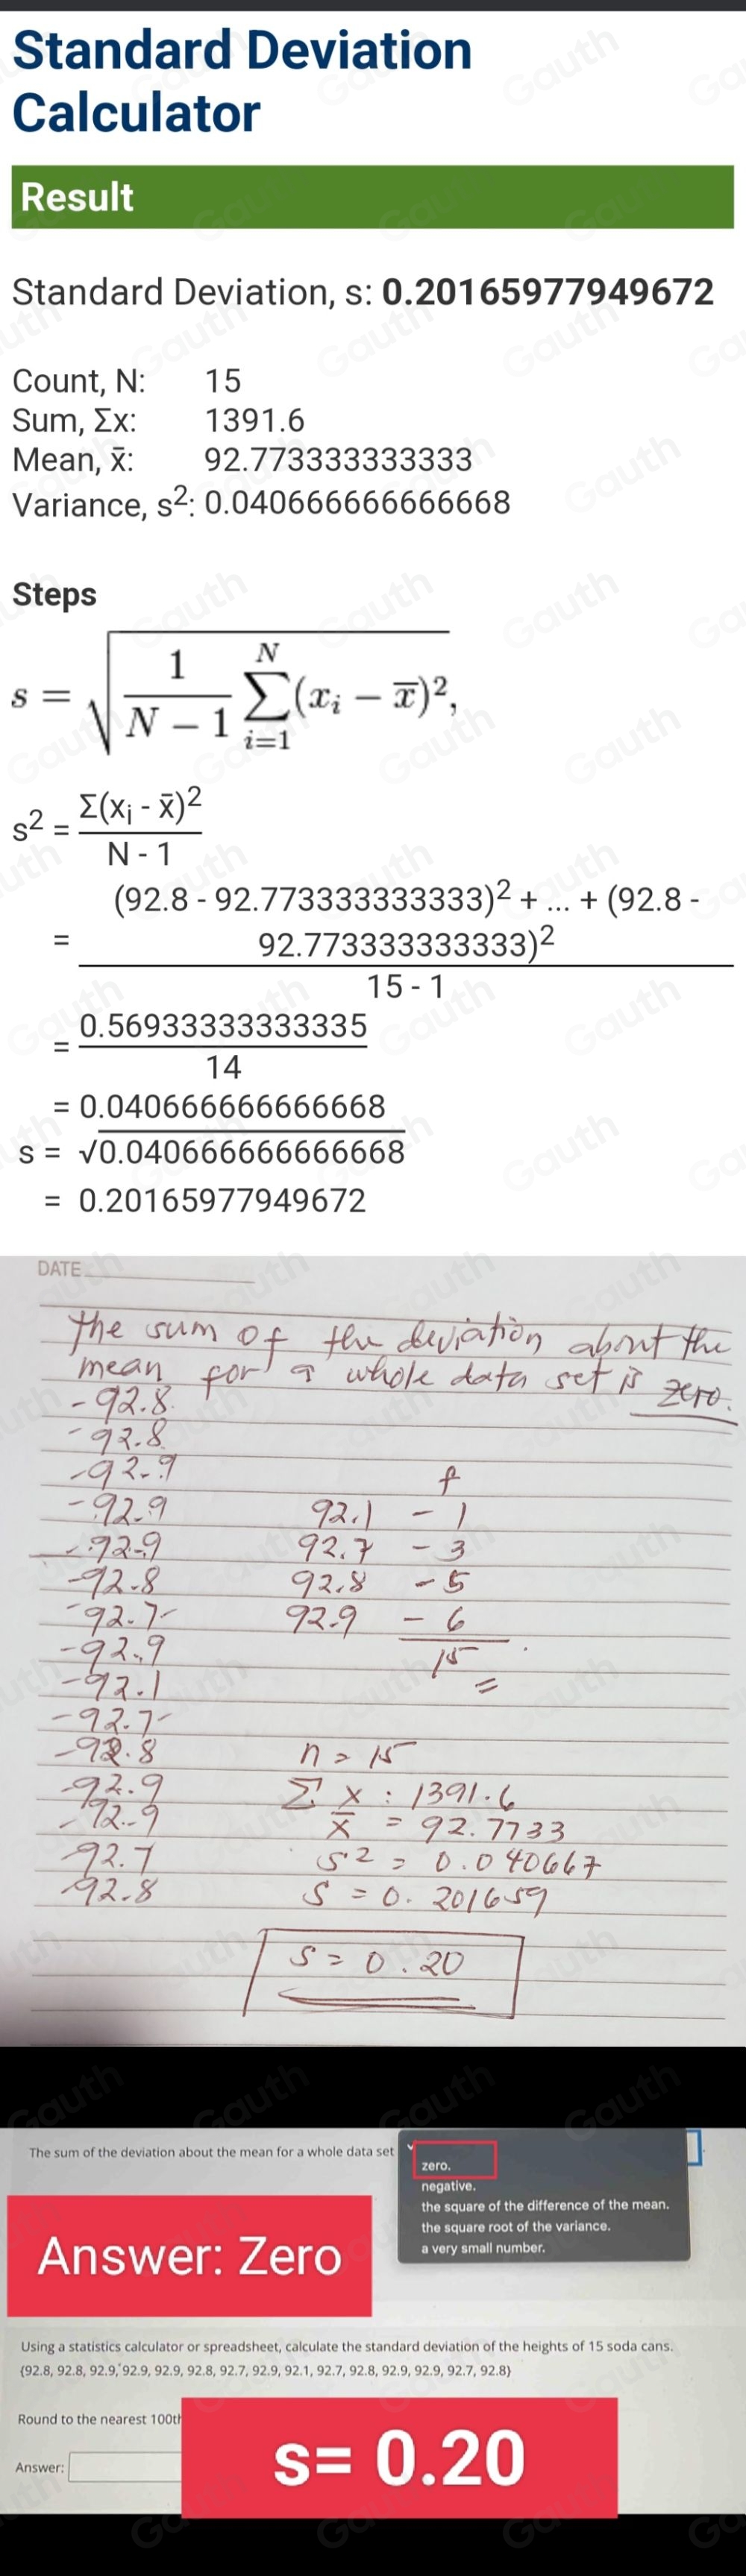 Standard Deviation
Calculator
Result
Standard Deviation, s: 0.20165977949672
Count, N: 15
Sum, Σx: 1391.6
Mean, x̄: 92.773333333333
Variance, s²: 0.040666666666668
Steps
s = √ 1/(N − 1) ∑ᵢ₌₁ᴺ (xᵢ − x̄)²,
s² = Σ(xᵢ - x̄)² / N - 1
= (92.8 - 92.773333333333)² + ... + (92.8 -
92.773333333333)²
15 - 1
= 0.56933333333335
14
= 0.040666666666668
s = √0.040666666666668
= 0.20165977949672
DATE
the sum of the deviation about the
mean for a whole data set is zero.
- 92.8
- 92.8
- 92.9
- 92.9
- 92.9
- 92.8
- 92.7
- 92.9
- 92.1
- 92.7
- 92.8
- 92.9
- 92.9
- 92.7
- 92.8
f
92.1 - 1
92.7 - 3
92.8 - 5
92.9 - 6
15
n = 15
Σ x : 1391.6
x̄ = 92.7733
s² = 0.040667
s = 0.201659
s = 0.20
The sum of the deviation about the mean for a whole data set
zero.
negative.
the square of the difference of the mean.
the square root of the variance.
a very small number.
Answer: Zero
Using a statistics calculator or spreadsheet, calculate the standard deviation of the heights of 15 soda cans.
{92.8, 92.8, 92.9, 92.9, 92.9, 92.8, 92.7, 92.9, 92.1, 92.7, 92.8, 92.9, 92.9, 92.7, 92.8}
Round to the nearest 100th
Answer:
s= 0.20
Gauth